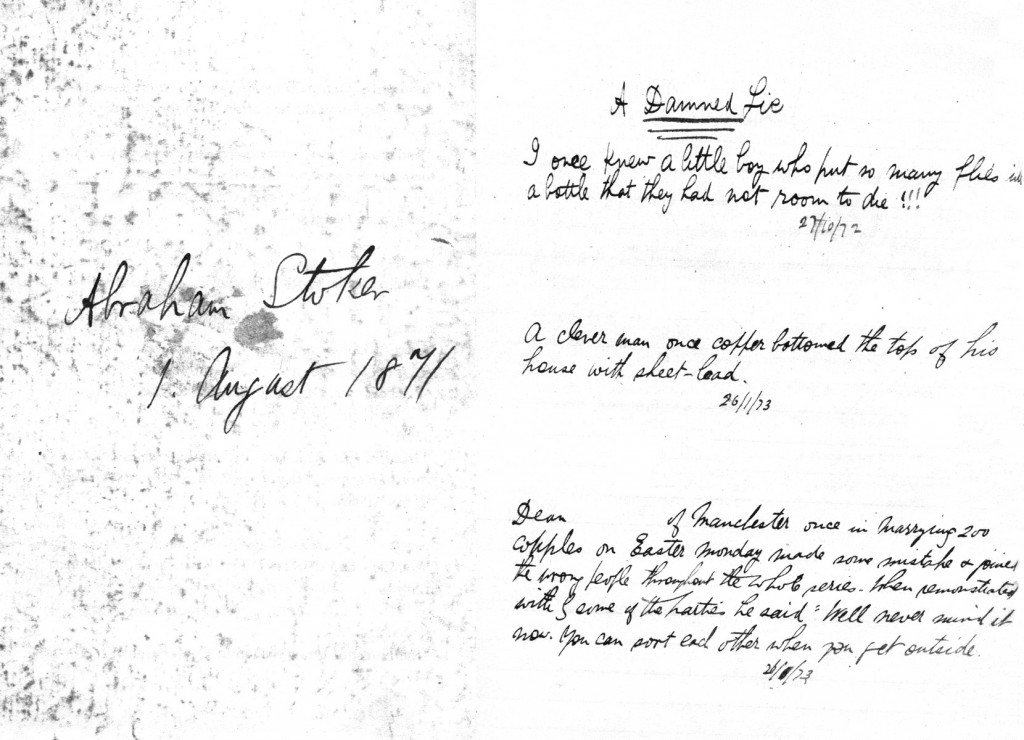 Abraham Stoker
1. August 1871
A Damned Lie
I once knew a little boy who put so many flies in
a bottle that they had not room to die !!!
27/10/72
A clever man once copper bottomed the top of his
house with sheet-lead.
26/1/73
Dean of Manchester once in marrying 200
copples on Easter Monday made some mistake & joined
the wrong people throughout the whole series. When remonstrated
with by some of the parties he said "Well never mind it
now. You can sort each other when you get outside.
26/1/73